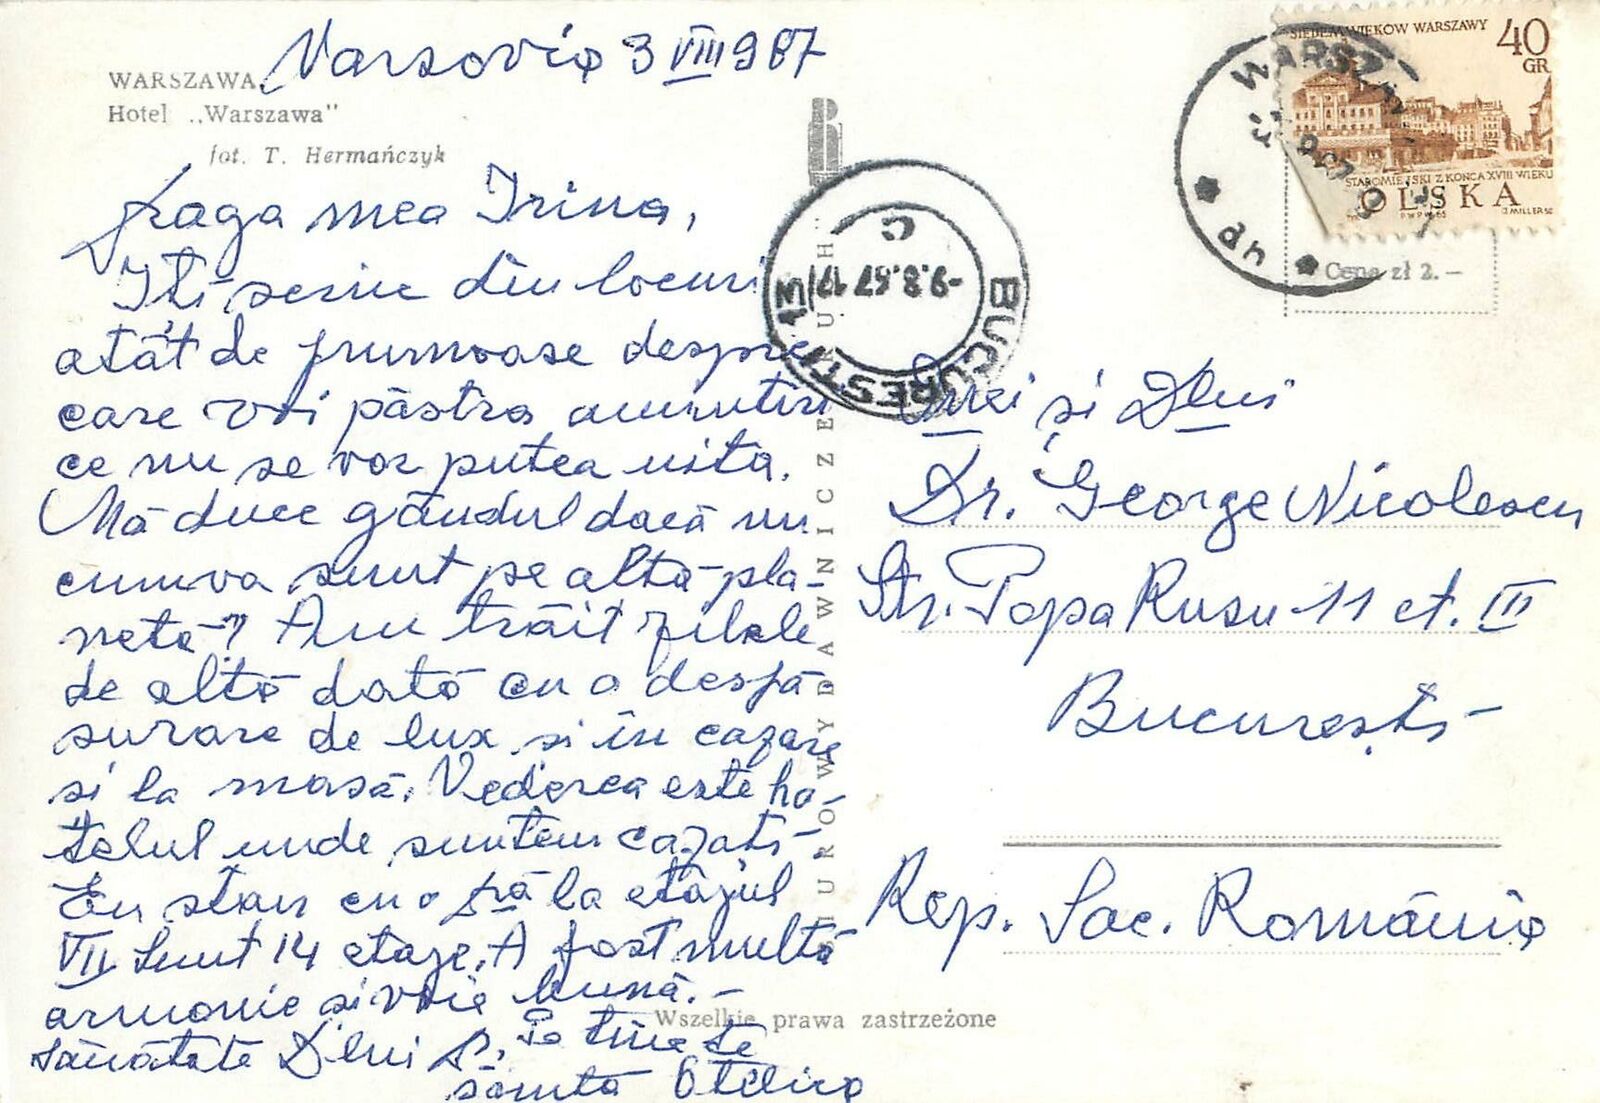 Varsovia 3 VIII 967
WARSZAWA
Hotel „Warszawa"
fot. T. Hermańczyk
Draga mea Irina,
Iti scriu din locuri
atât de frumoase despre
care voi păstra amintiri
ce nu se vor putea uita.
Mă duce gândul dacă nu
cumva sunt pe altă pla-
netă? Am trăit zilele
de altă dată cu o despă
surare de lux și în cazare
si la masă. Vederea este ho-
telul unde suntem cazați-
Eu stau cu o la etajul
VII sunt 14 etaje. A fost multă
armonie si voie bună.-
sănătate Dlui Pe tine te
sărută Otilia
BIURO WYDAWNICZE RUCH
Wszelkie prawa zastrzeżone
BUCUREȘTI 13
-9.8.67 17
C
WARSZAWA
up
SIEDEM WIEKÓW WARSZAWY
40
GR
STAROMIEJSKI Z KONCA XVIII WIEKU
OLSKA
PWPW 65
Cena zł 2.—
și Dlui
Dr. George Nicolescu
Str. Popa Rusu 11 et. III
București
Rep. Soc. România